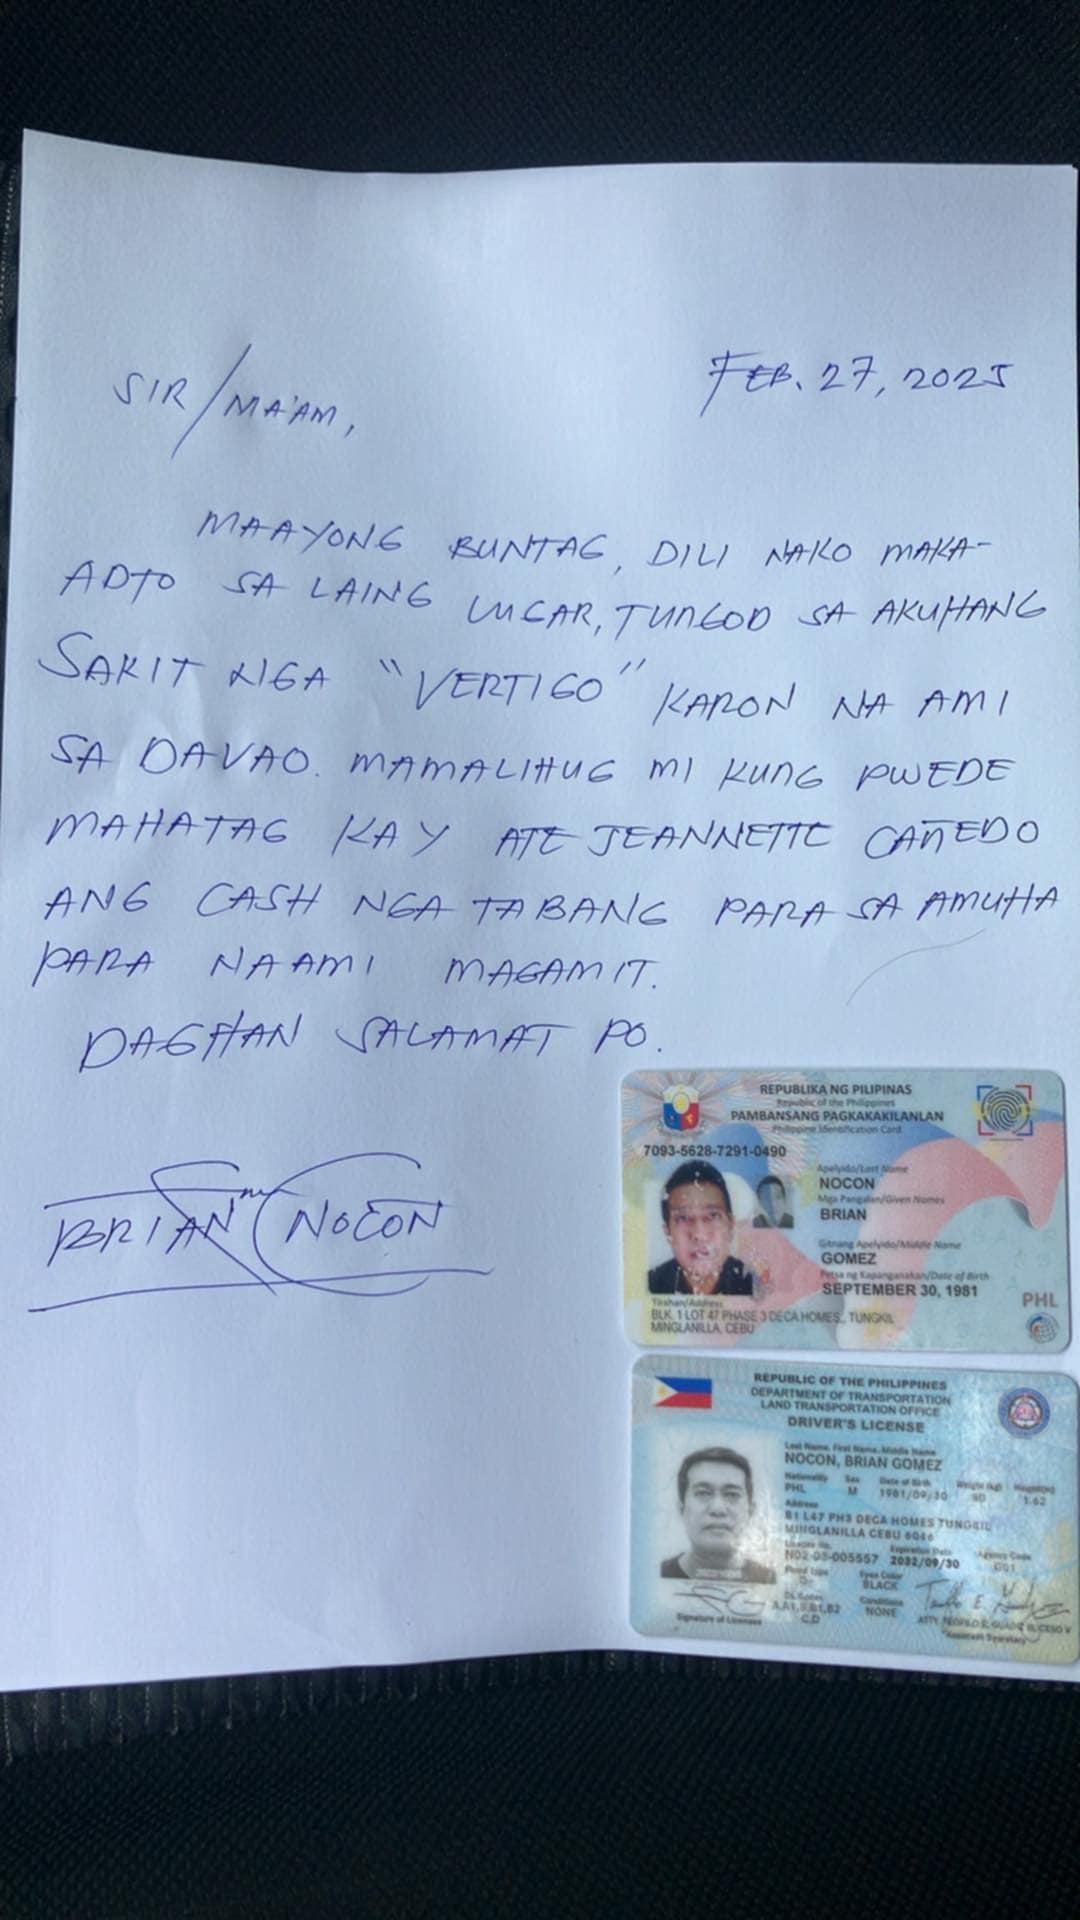 FEB. 27, 2025
SIR/MA'AM,
MAAYONG BUNTAG, DILI NAKO MAKA-
ADTO SA LAING LUGAR, TUNGOD SA AKUHANG
SAKIT NGA "VERTIGO" KARON NA AMI
SA DAVAO. MAMALIHUG MI KUNG PWEDE
MAHATAG KAY ATE JEANNETTE CAÑEDO
ANG CASH NGA TABANG PARA SA AMUHA
PARA NAAMI MAGAMIT.
DAGHAN SALAMAT PO.
BRIAN NOCON
REPUBLIKA NG PILIPINAS
Republic of the Philippines
PAMBANSANG PAGKAKAKILANLAN
Philippine Identification Card
7093-5628-7291-0490
Apelyido/Last Name
NOCON
Mga Pangalan/Given Names
BRIAN
Gitnang Apelyido/Middle Name
GOMEZ
Petsa ng Kapanganakan/Date of Birth
SEPTEMBER 30, 1981
PHL
Tirahan/Address
BLK. 1 LOT 47 PHASE 3 DECA HOMES,, TUNGKIL
MINGLANILLA, CEBU
REPUBLIC OF THE PHILIPPINES
DEPARTMENT OF TRANSPORTATION
LAND TRANSPORTATION OFFICE
DRIVER'S LICENSE
Last Name, First Name, Middle Name
NOCON, BRIAN GOMEZ
Nationality Sex Date of Birth Weight (kg) Height(m)
PHL M 1981/09/30 1.62
Address
B1 L47 PH3 DECA HOMES TUNGKIL
MINGLANILLA CEBU 6046
License No. Expiration Date Agency Code
N02-05-005557 2032/09/30
Blood Type Eyes Color
BLACK
DL Codes Conditions
A,A1,B,B1,B2 NONE
C,D
Signature of Licensee
Assistant Secretary